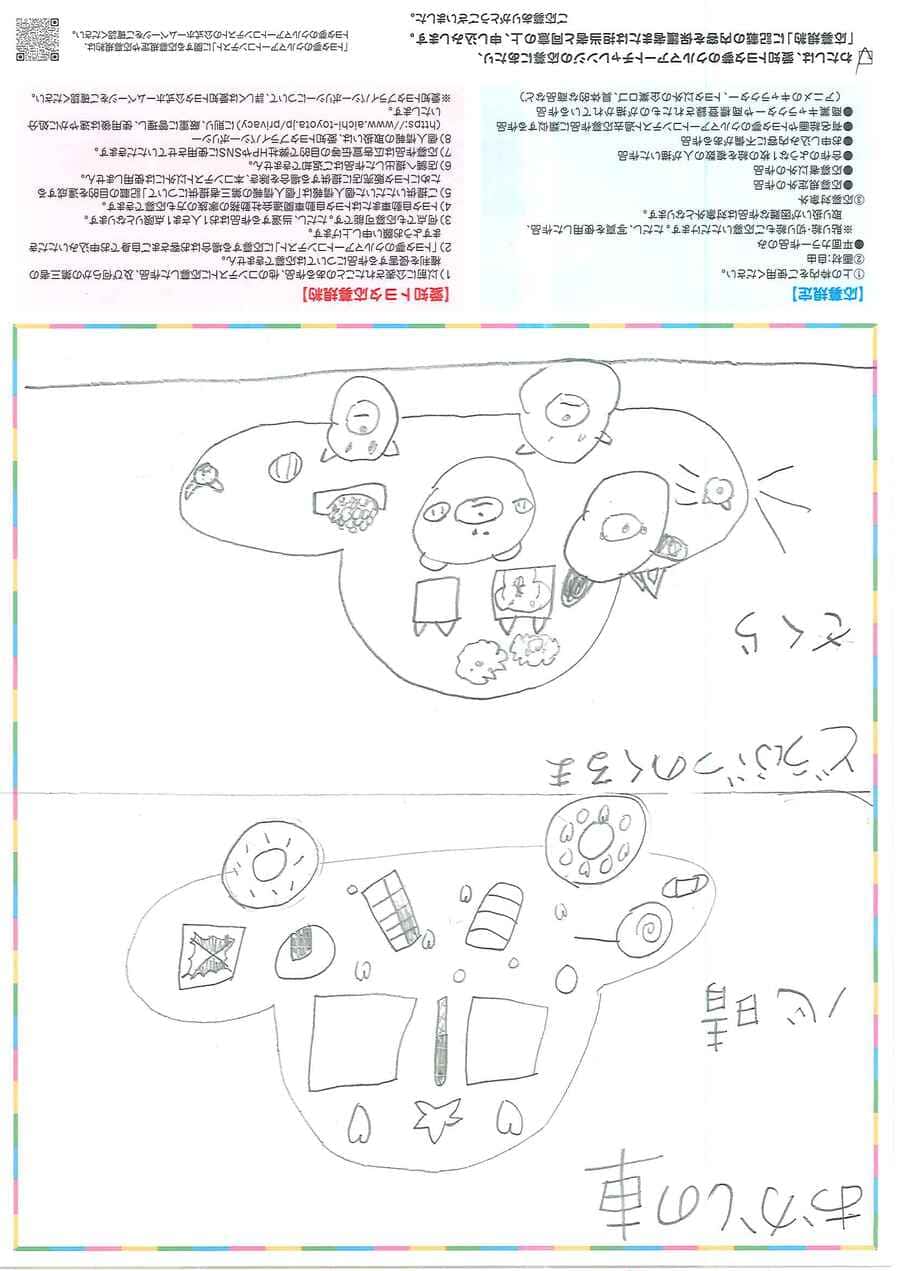 おかしの車
心晴
どうぶつのくるま
さくら
【応募規定】
①上の枠内をご使用ください。
②画材：自由
●平面カラー作品のみ
※貼り絵・切り絵もご応募いただけます。ただし、写真を使用した作品、
取扱いが困難な作品は対象外となります。
③応募対象外
●応募規定外の作品
●応募者以外の作品
●合作のような1枚の絵を複数の人が描いた作品
●お申し込み内容に不備がある作品
●有名絵画やトヨタ夢のクルマアートコンテスト過去応募作品に類似する作品
●商業キャラクターや商標登録されたものが描かれている作品
（アニメのキャラクター、トヨタ以外の企業ロゴ、具体的な商品など）
【愛知トヨタ応募規約】
1）以前に公表されたことのある作品、他のコンテストに応募した作品、及び何らかの第三者の
権利を侵害する作品については応募できません。
2）「トヨタ夢のクルマアートコンテスト」に応募する場合はお客さまご自身でお申込みいただき
ますようお願い申し上げます。
3）何点でも応募可能です。ただし、当選する作品はお1人さま1点限りとなります。
4）トヨタ自動車またはトヨタ自動車関連会社勤務の家族の方も応募できます。
5）ご提供いただいた個人情報は「個人情報の第三者提供について」記載の目的を達成する
ためにトヨタ販売店に提供する場合を除き、本コンテスト以外には使用しません。
6）店舗へ提出した作品はご返却できません。
7）応募作品は広告宣伝等の目的で弊社HPやSNSに使用させていただきます。
8）個人情報の取扱いは、愛知トヨタプライバシーポリシー
（https://www.aichi-toyota.jp/privacy）に則り、厳重に管理し、使用後は速やかに処分
いたします。
※愛知トヨタプライバシーポリシーについて、詳しくは愛知トヨタ公式ホームページをご確認ください。
わたしは、愛知トヨタ夢のクルマアートチャレンジの応募にあたり、
「応募規約」に記載の内容を保護者または担当者と同意の上、申し込みします。
ご応募ありがとうございました。
「トヨタ夢のクルマアートコンテスト」に関する応募規定や応募規約は、
トヨタ夢のクルマアートコンテストの公式ホームページをご確認ください。